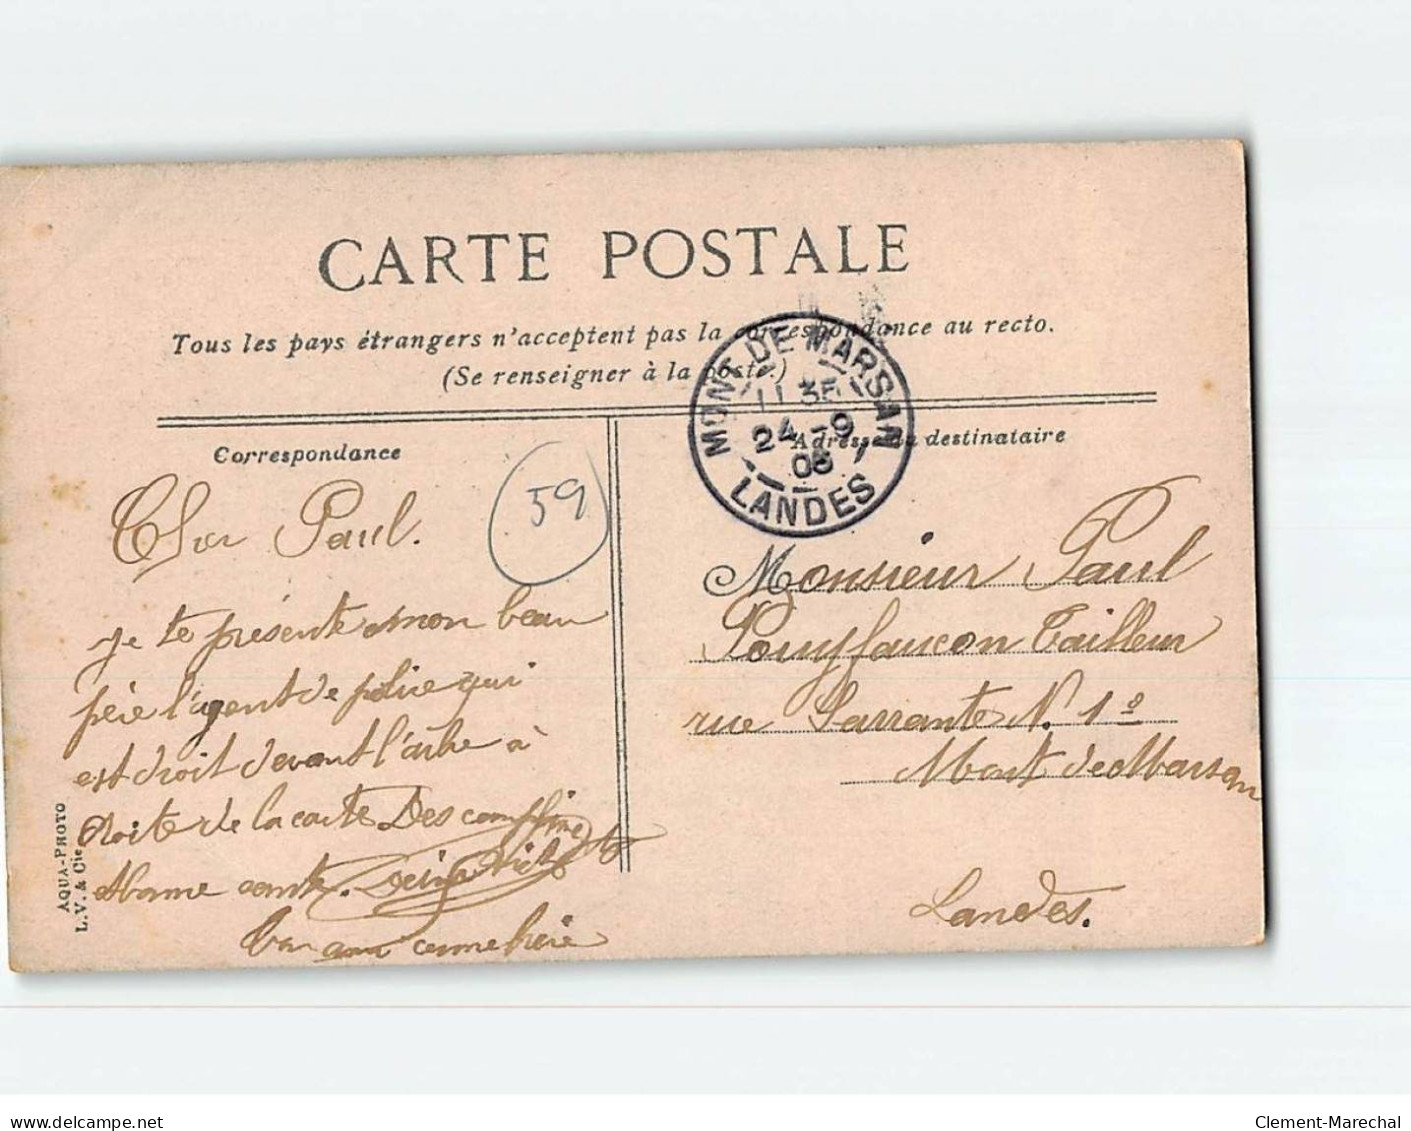 CARTE POSTALE
Tous les pays étrangers n'acceptent pas la correspondance au recto.
(Se renseigner à la poste.)
MONT-DE-MARSAN
11 35
24 -9
LANDES
Correspondance
Adresse du destinataire
59
Cher Paul.
je te présente mon beau
père l'agent de police qui
est droit devant l'arbre à
droite de la carte Des
Monsieur Paul
Pouyfaucon Tailleur
rue Sarrante N. 1º
Mont de Marsan
Landes.
AQUA-PHOTO
L.V. & Cie
delcampe.net
Clement-Marechal